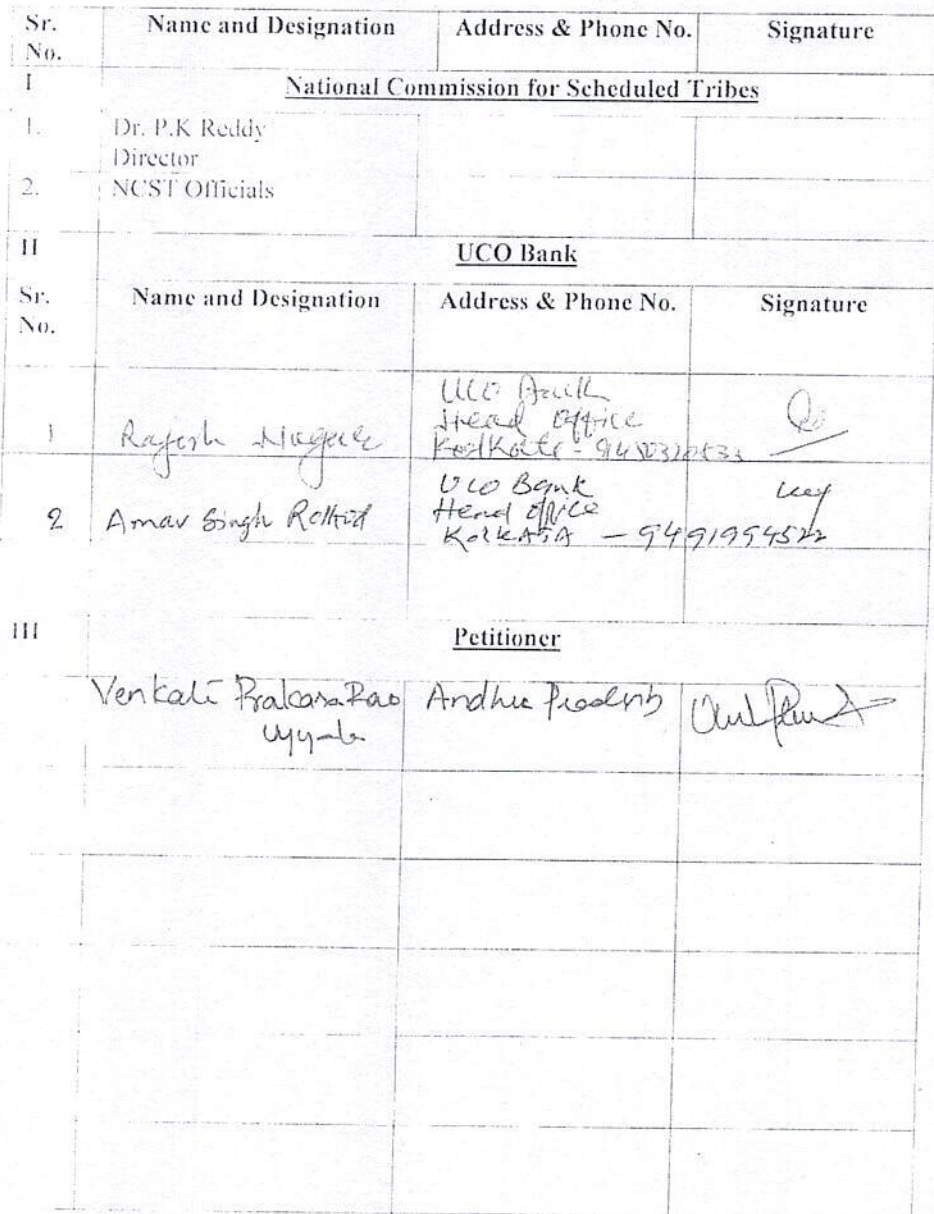 Sr. No. Name and Designation Address & Phone No. Signature
I National Commission for Scheduled Tribes
1. Dr. P.K Reddy
Director
2. NCST Officials
II UCO Bank
Sr. No. Name and Designation Address & Phone No. Signature
UCO Bank
Head Office
1 Rajesh Kolkata -
UCO Bank
Head Office
2 Amar Singh KolKATA - 9491994522
III Petitioner
Venkata Prakasa Rao Andhra Pradesh